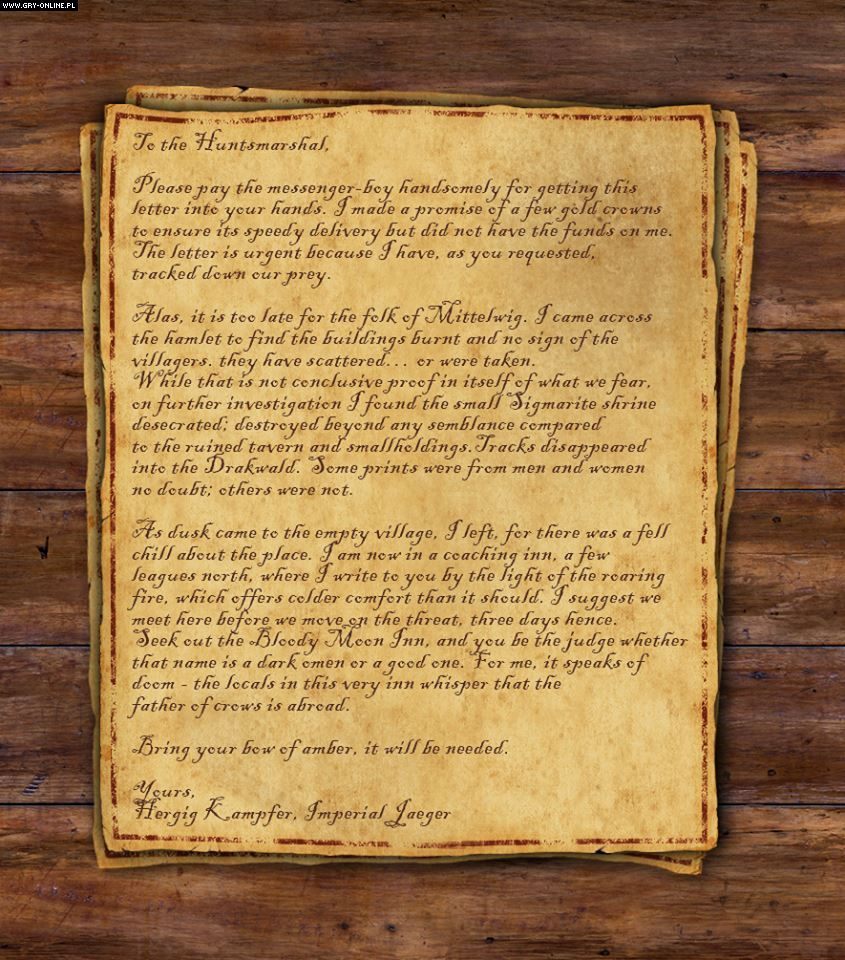 WWW.GRY-ONLINE.PL
To the Huntsmarshal,
Please pay the messenger-boy handsomely for getting this
letter into your hands. I made a promise of a few gold crowns
to ensure its speedy delivery but did not have the funds on me.
The letter is urgent because I have, as you requested,
tracked down our prey.
Alas, it is too late for the folk of Mittelwig. I came across
the hamlet to find the buildings burnt and no sign of the
villagers. they have scattered... or were taken.
While that is not conclusive proof in itself of what we fear,
on further investigation I found the small Sigmarite shrine
desecrated; destroyed beyond any semblance compared
to the ruined tavern and smallholdings.Tracks disappeared
into the Drakwald. Some prints were from men and women
no doubt; others were not.
As dusk came to the empty village, I left, for there was a fell
chill about the place. I am now in a coaching inn, a few
leagues north, where I write to you by the light of the roaring
fire, which offers colder comfort than it should. I suggest we
meet here before we move on the threat, three days hence.
Seek out the Bloody Moon Inn, and you be the judge whether
that name is a dark omen or a good one. For me, it speaks of
doom - the locals in this very inn whisper that the
father of crows is abroad.
Bring your bow of amber, it will be needed.
Yours,
Hergig Kampfer, Imperial Jaeger